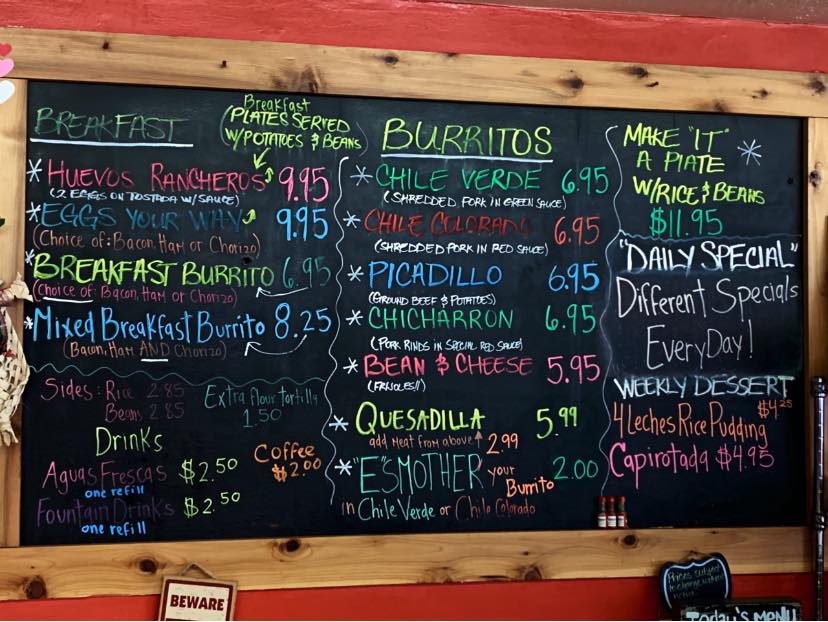 BREAKFAST
Breakfast
(PLATES SERVED
W/POTATOES & BEANS)
* HUEVOS RANCHEROS 9.95
(2 EGGS ON TOSTADA W/SAUCE)
* EGGS YOUR WAY 9.95
(Choice of: Bacon, Ham or Chorizo)
* BREAKFAST BURRITO 6.95
(Choice of: Bacon, Ham or Chorizo)
* Mixed Breakfast Burrito 8.25
(Bacon, Ham AND Chorizo)
Sides: Rice 2.85
Beans 2.85
Extra flour tortilla
1.50
Drinks
Aguas Frescas $2.50
one refill
Fountain Drinks $2.50
one refill
Coffee
$2.00
BURRITOS
* CHILE VERDE 6.95
(SHREDDED PORK IN GREEN SAUCE)
* CHILE COLORADO 6.95
(SHREDDED PORK IN RED SAUCE)
* PICADILLO 6.95
(GROUND BEEF & POTATOES)
* CHICHARRON 6.95
(PORK RINDS IN SPECIAL RED SAUCE)
* BEAN & CHEESE 5.95
(FRIJOLES!!)
* QUESADILLA 5.99
add meat from above 2.99
* "E"SMOTHER your Burrito 2.00
in Chile Verde or Chile Colorado
MAKE "IT" *
A PLATE
W/RICE & BEANS
$11.95
"DAILY SPECIAL"
Different Specials
EveryDay!
WEEKLY DESSERT
4 Leches Rice Pudding $4.25
Capirotada $4.95
BEWARE
Prices subject
to change without
notice
Today's MENU